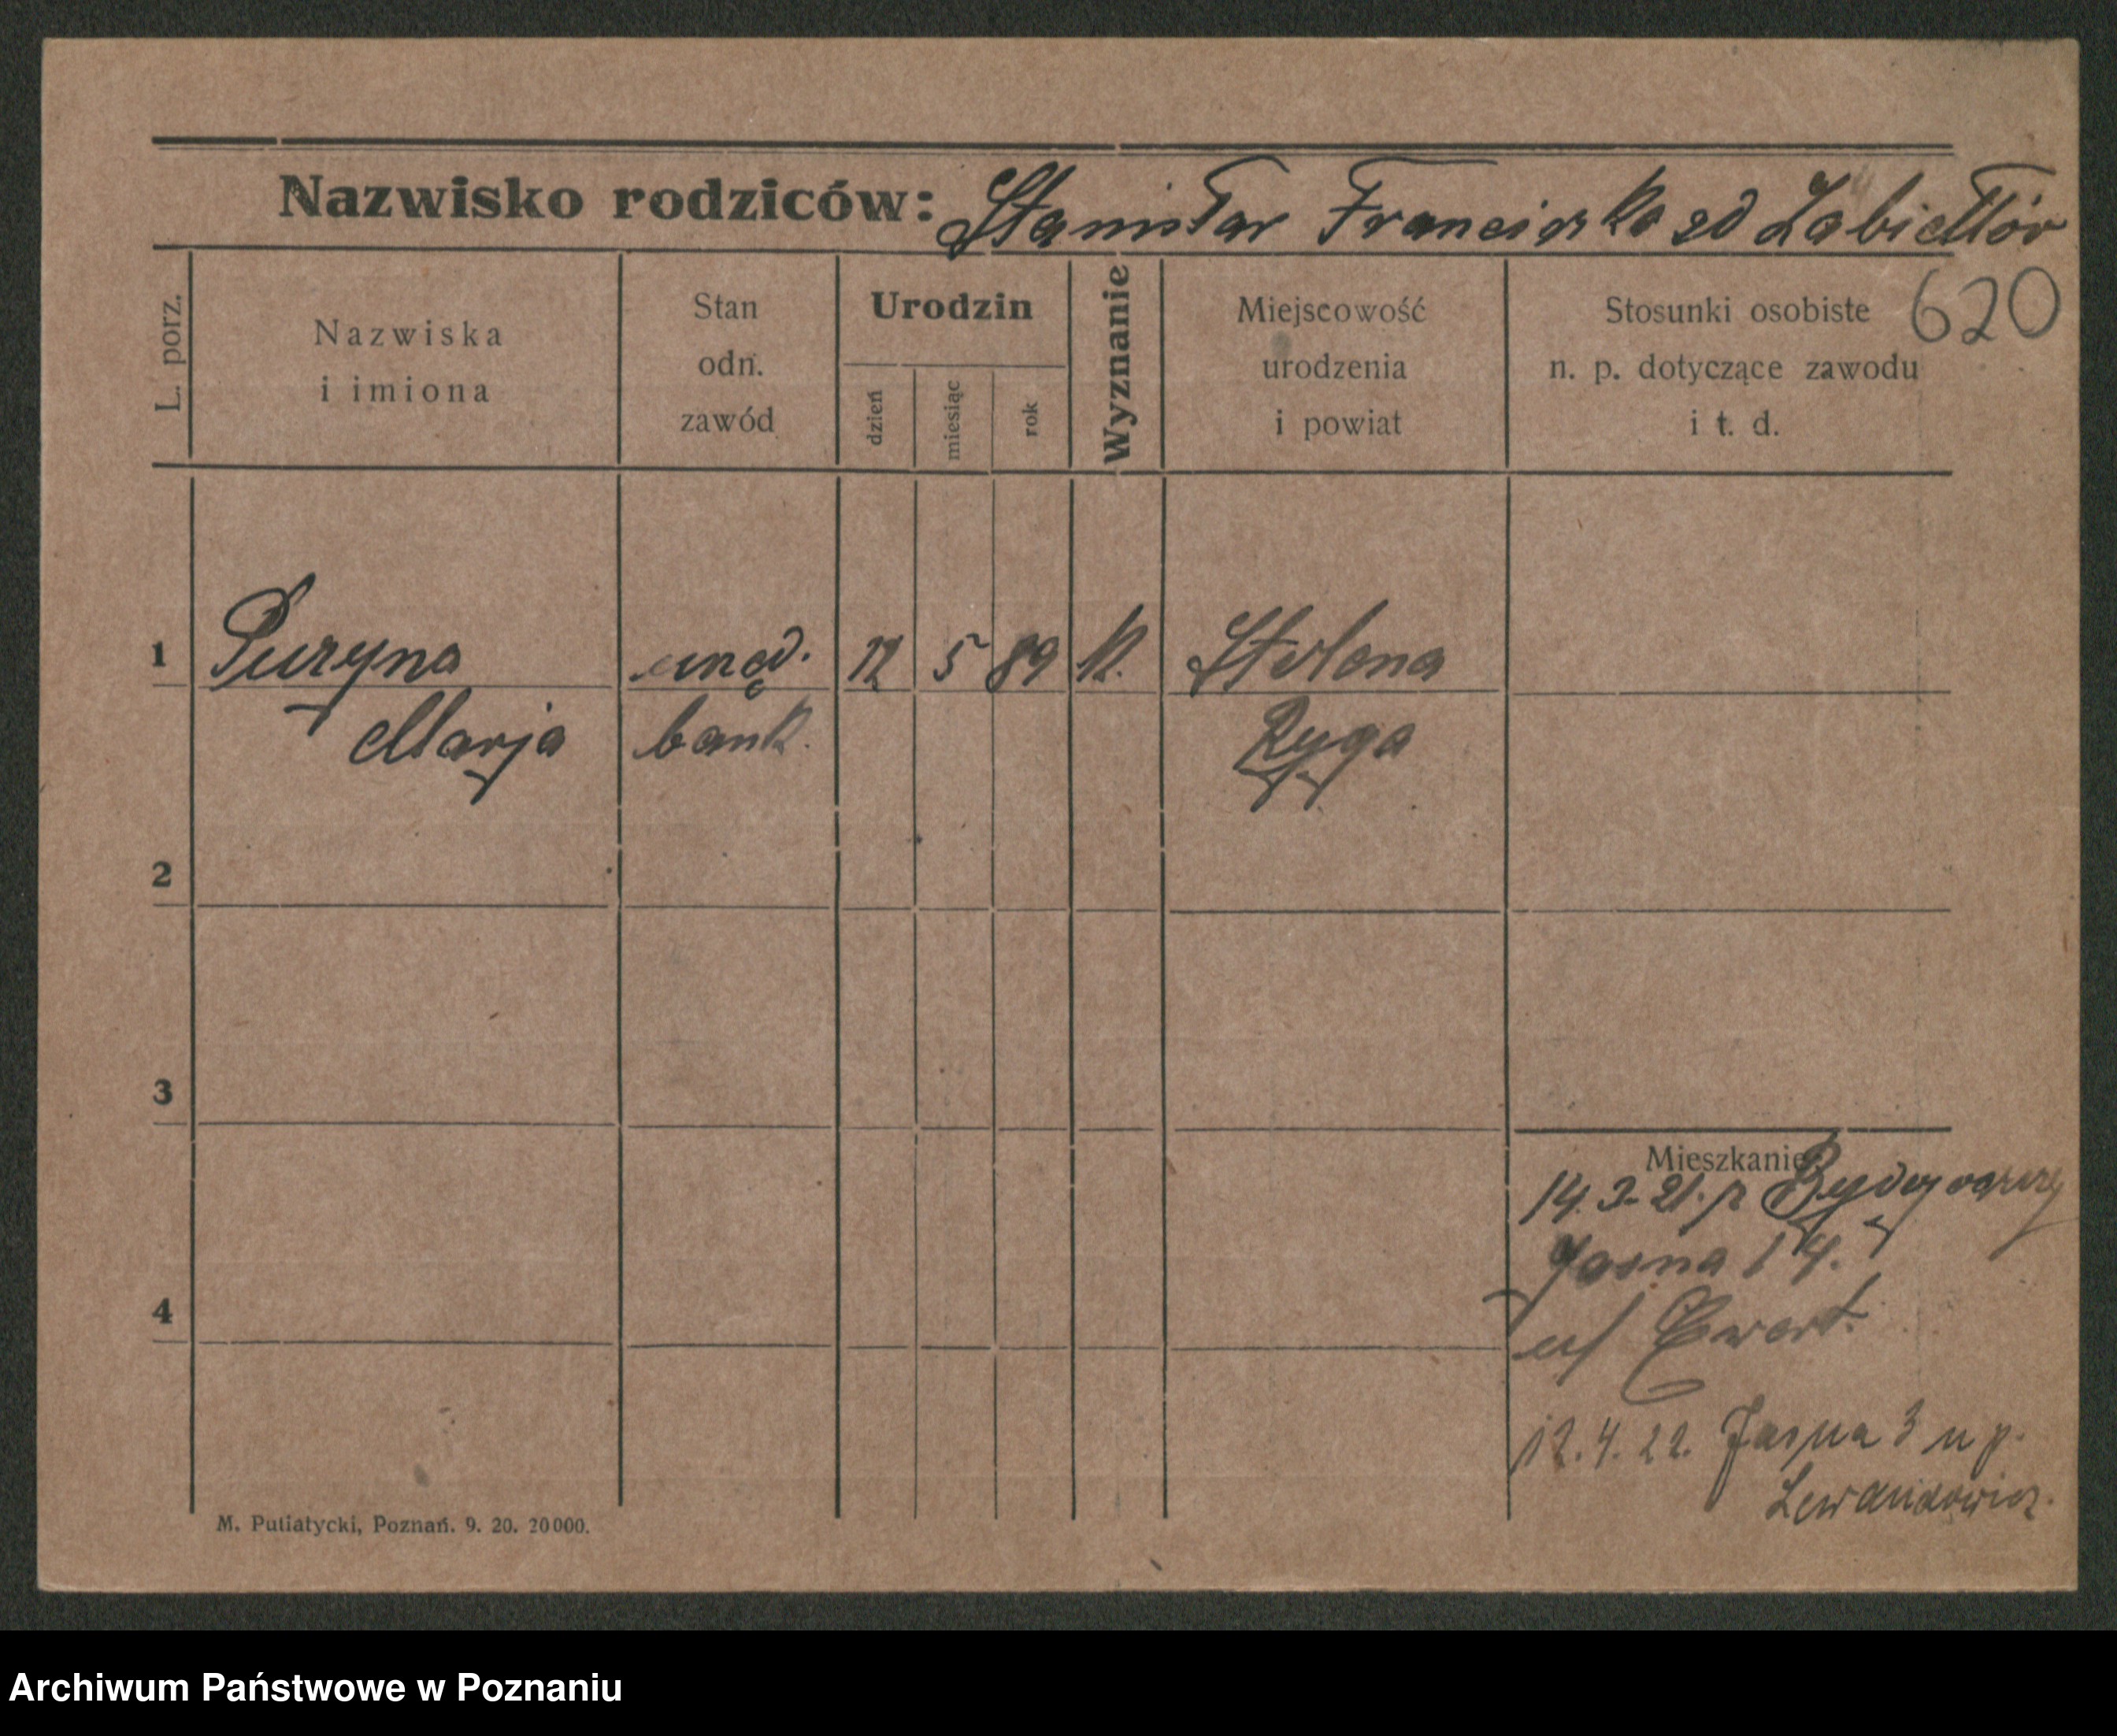 Nazwisko rodziców: Stanisław Franciszka zd Zabiełłów
620
L. porz.
Nazwiska
i imiona
Stan
odn.
zawód
Urodzin
dzień
miesiąc
rok
Wyznanie
Miejscowość
urodzenia
i powiat
Stosunki osobiste
n. p. dotyczące zawodu
i t. d.
1 Puzyna urzęd. 12 5 89 k.
Marja bank. Ryga
2
3
4
Mieszkanie
14. 3. 21. p Bydgoszczy
Jasna 14.
u/ Ewert.
12. 4. 22. Jasna 3 u p.
Lewandowicz.
M. Putiatycki, Poznań. 9. 20. 20000.
Archiwum Państwowe w Poznaniu